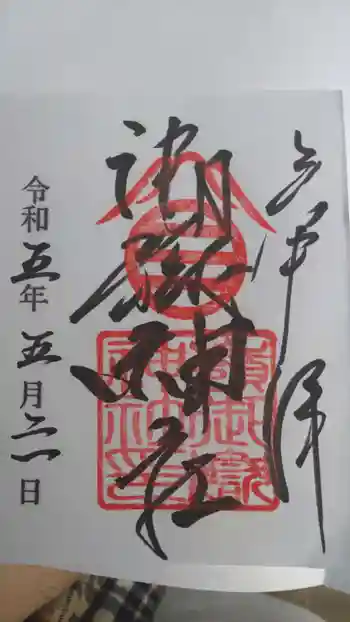 奉拝
御嶽神社
令和五年五月二一日